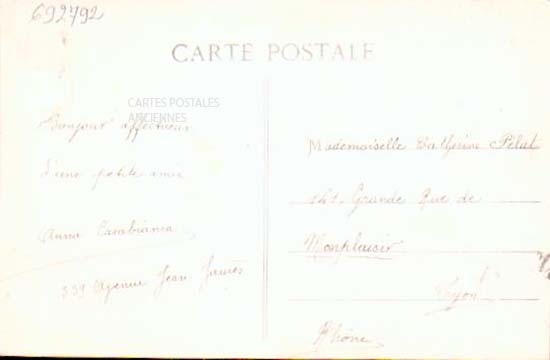 692792
CARTE POSTALE
CARTES POSTALES
ANCIENNES
Bonjour affectueux
d'une petite amie
Anna Casabianca
339 Avenue Jean Jaurès
Mademoiselle Catherine Pélat
141 Grande Rue de
Monplaisir
Lyon
Rhône